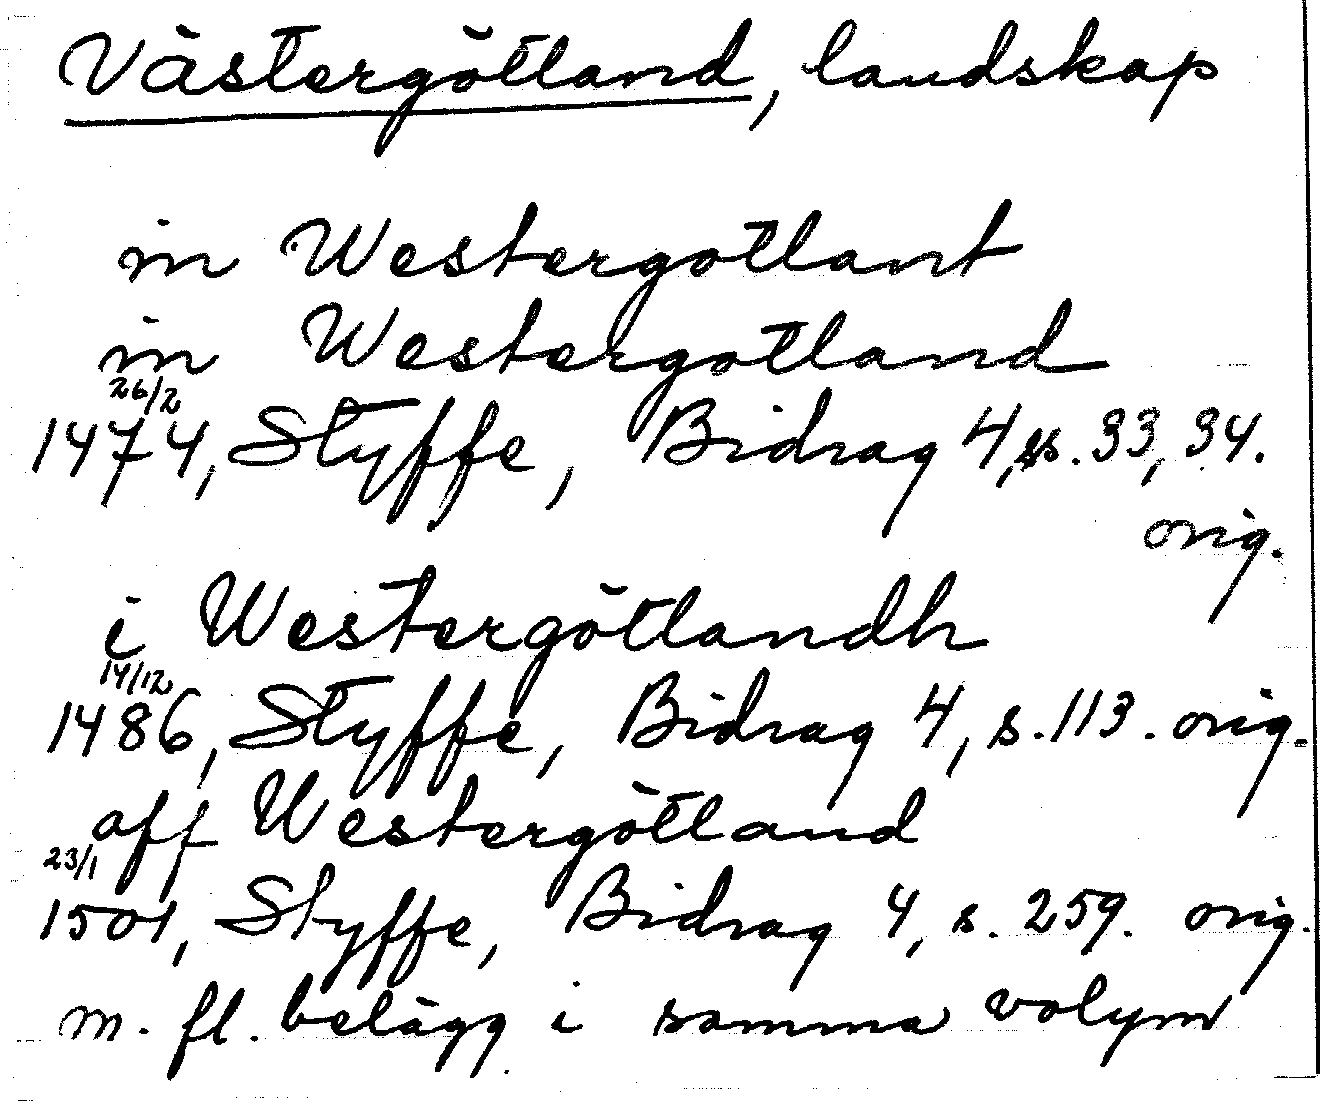 Västergötland, landskap
in Westergotlant
in Westergotland
26/2
1474, Styffe, Bidrag 4, ss. 33, 34.
orig.
i Westergötlandh
14/12
1486, Styffe, Bidrag 4, s. 113. orig.
aff Westergötland
23/1
1501, Styffe, Bidrag 4, s. 259. orig.
m. fl. belägg i samma volym